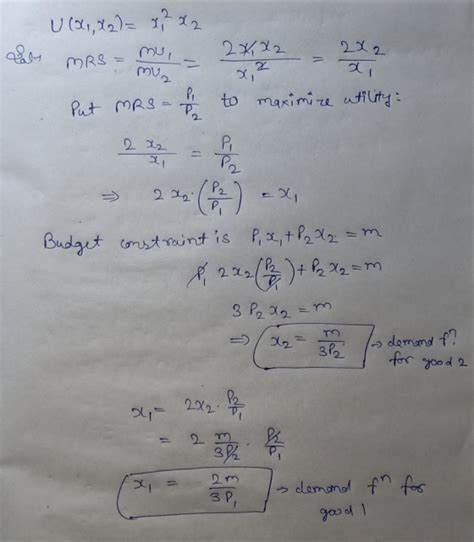 U(x₁,x₂) = x₁² x₂
MRS = MU₁/MU₂ = 2x₁x₂/x₁² = 2x₂/x₁
Put MRS = P₁/P₂ to maximize utility:
2 x₂/x₁ = P₁/P₂
⇒ 2 x₂·(P₂/P₁) = x₁
Budget constraint is P₁x₁+P₂x₂ = m
P₁ 2x₂(P₂/P₁) + P₂x₂ = m
3P₂x₂ = m
⇒ x₂ = m/3P₂ → demand fⁿ
for good 2
x₁ = 2x₂·P₂/P₁
= 2 m/3P₂ · P₂/P₁
x₁ = 2m/3P₁ → demand fⁿ for
good 1